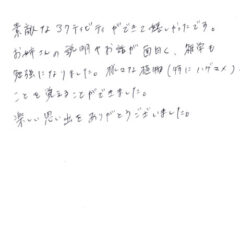 素敵なアクティビティができて嬉しかったです。
お姉さんの説明やお話が面白く、雑学も
勉強になりました。様々な植物(特にハゲコメ)
ことを覚えることができました。
楽しい思い出をありがとうございました。